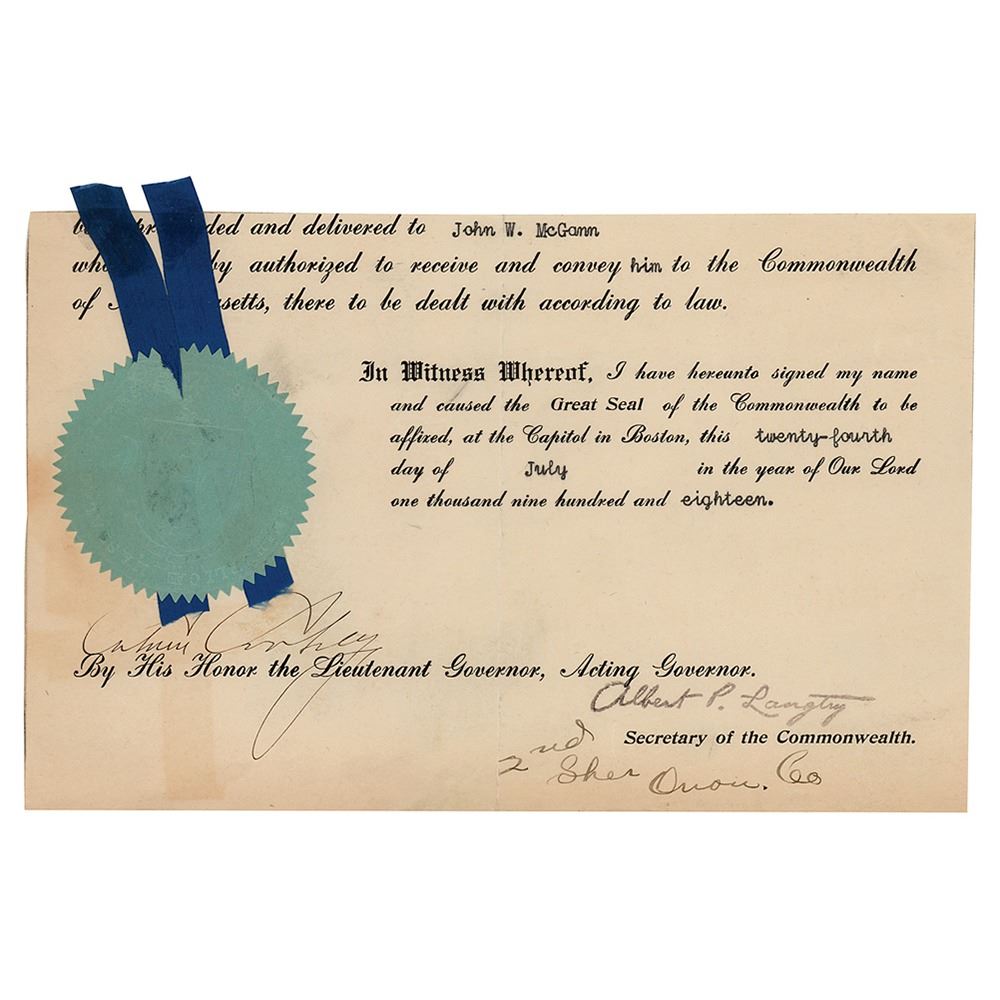 and delivered to John W. McGann
authorized to receive and convey him to the Commonwealth
of there to be dealt with according to law.
In Witness Whereof, I have hereunto signed my name
and caused the Great Seal of the Commonwealth to be
affixed, at the Capitol in Boston, this twenty-fourth
day of July in the year of Our Lord
one thousand nine hundred and eighteen.
Calvin Coolidge
By His Honor the Lieutenant Governor, Acting Governor.
Albert P. Langtry
Secretary of the Commonwealth.
2nd Sher Onon. Co